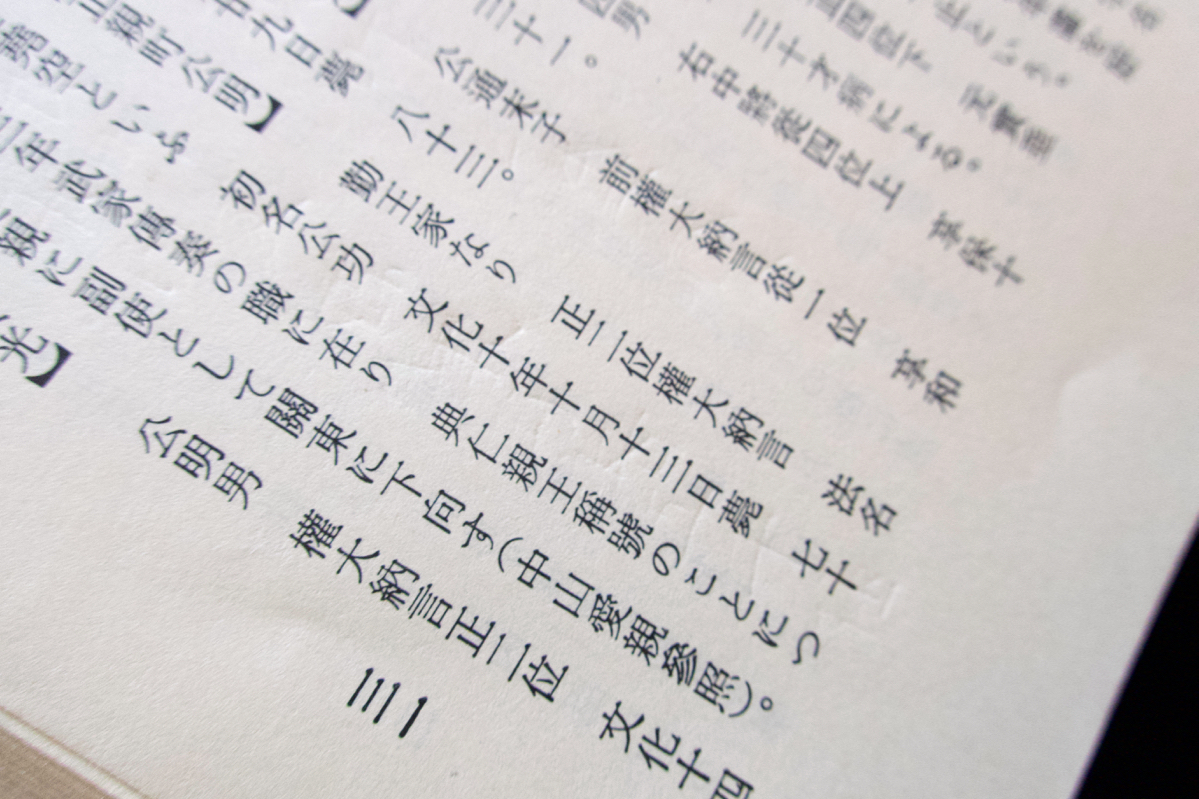 止という。
正四位下
三十才病による。
四男 右中將從四位上 享保十
三十一。
公通末子 前權大納言從一位 享和
廿九日薨 八十三。
正親町公明】 勤王家なり 正二位權大納言 法名
空といふ 初名公功 文化十年十月十三日薨 七十
三年武家傳奏の職に在り 典仁親王稱號のことにつ
親に副使として關東に下向す(中山愛親參照)。
光】 公明男 權大納言正二位 文化十四
三一